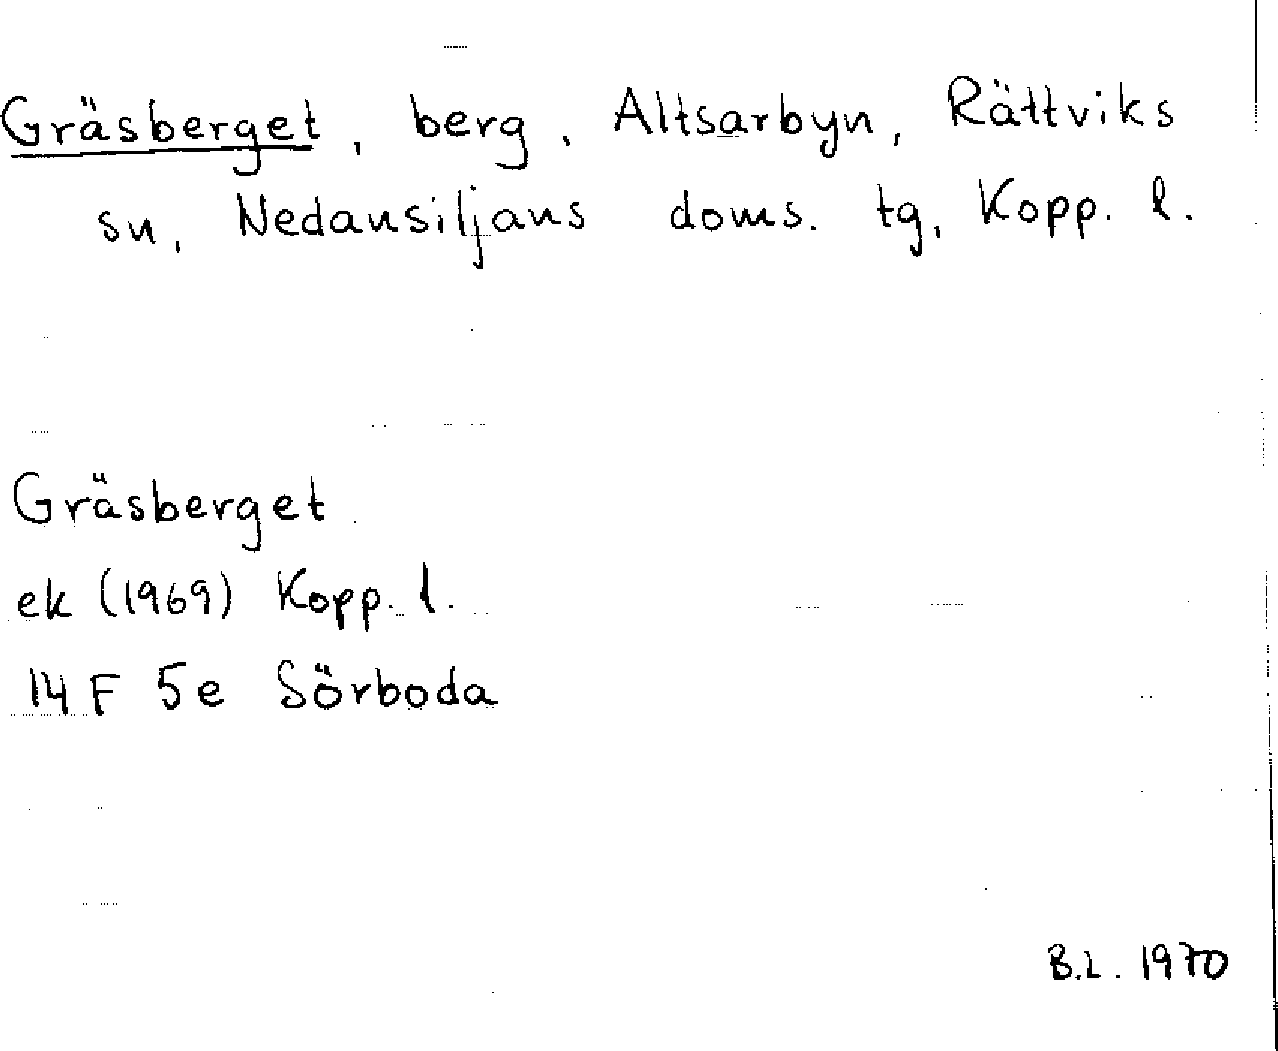 Gräsberget, berg, Altsarbyn, Rättviks
sn, Nedansiljans doms. tg, Kopp. l.
Gräsberget
ek (1969) Kopp. l.
14 F 5e Sörboda
B.L. 1970